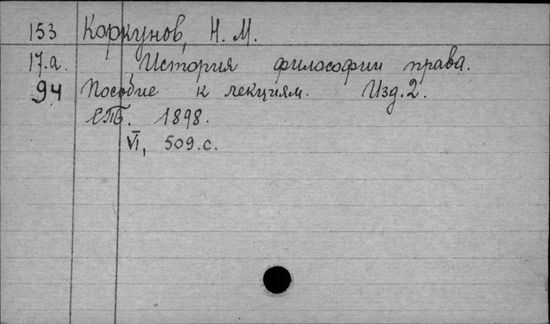 153 Коркунов, Н. М.
17.а. История философии права.
94 Пособие к лекциям. Изд. 2.
СПБ. 1898.
VI, 509.с.